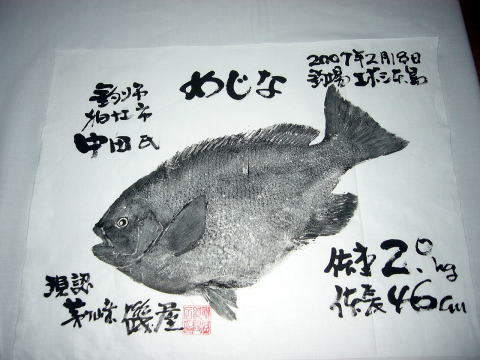 めじな
2007年2月18日
釣場 エボシ本島
釣り師
狛江市
中田氏
体重 2.0kg
体長 46cm
現認
茅ヶ崎 磯屋